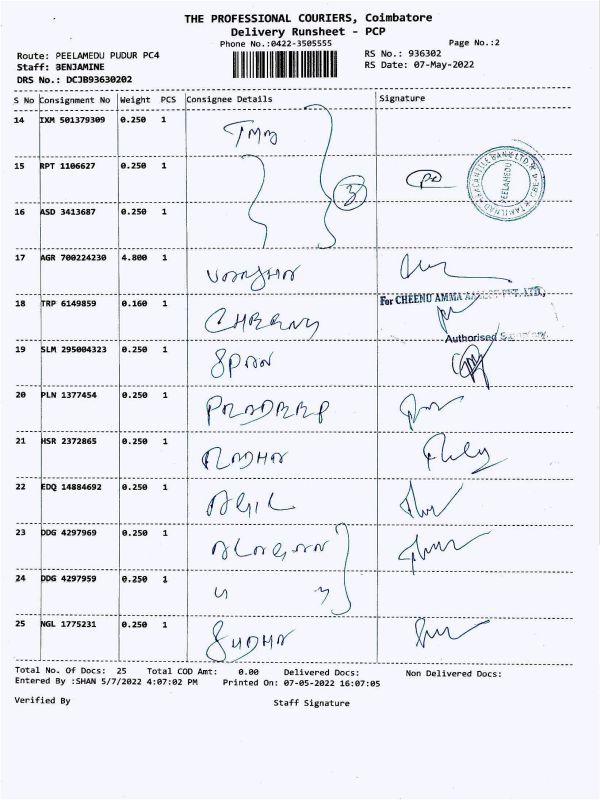 THE PROFESSIONAL COURIERS, Coimbatore
Delivery Runsheet - PCP
Phone No.:0422-3505555 Page No.:2
Route: PEELAMEDU PUDUR PC4 RS No.: 936302
Staff: BENJAMINE RS Date: 07-May-2022
DRS No.: DCJB93630202
S No Consignment No Weight PCS Consignee Details Signature
14 IXM 501379309 0.250 1 TMB
15 RPT 1106627 0.250 1
3
TAMILNAD MERCANTILE BANK LTD
PEELAMEDU
16 ASD 3413687 0.250 1
17 AGR 700224230 4.800 1
18 TRP 6149859 0.160 1
For CHEENU AMMA
Authorised
19 SLM 295004323 0.250 1 SPAN
20 PLN 1377454 0.250 1 PRADEEP
21 HSR 2372865 0.250 1 RADHA
22 EDQ 14884692 0.250 1 AGIL
23 DDG 4297969 0.250 1
24 DDG 4297959 0.250 1
25 NGL 1775231 0.250 1 SUDHA
Total No. Of Docs: 25 Total COD Amt: 0.00 Delivered Docs: Non Delivered Docs:
Entered By :SHAN 5/7/2022 4:07:02 PM Printed On: 07-05-2022 16:07:05
Verified By Staff Signature